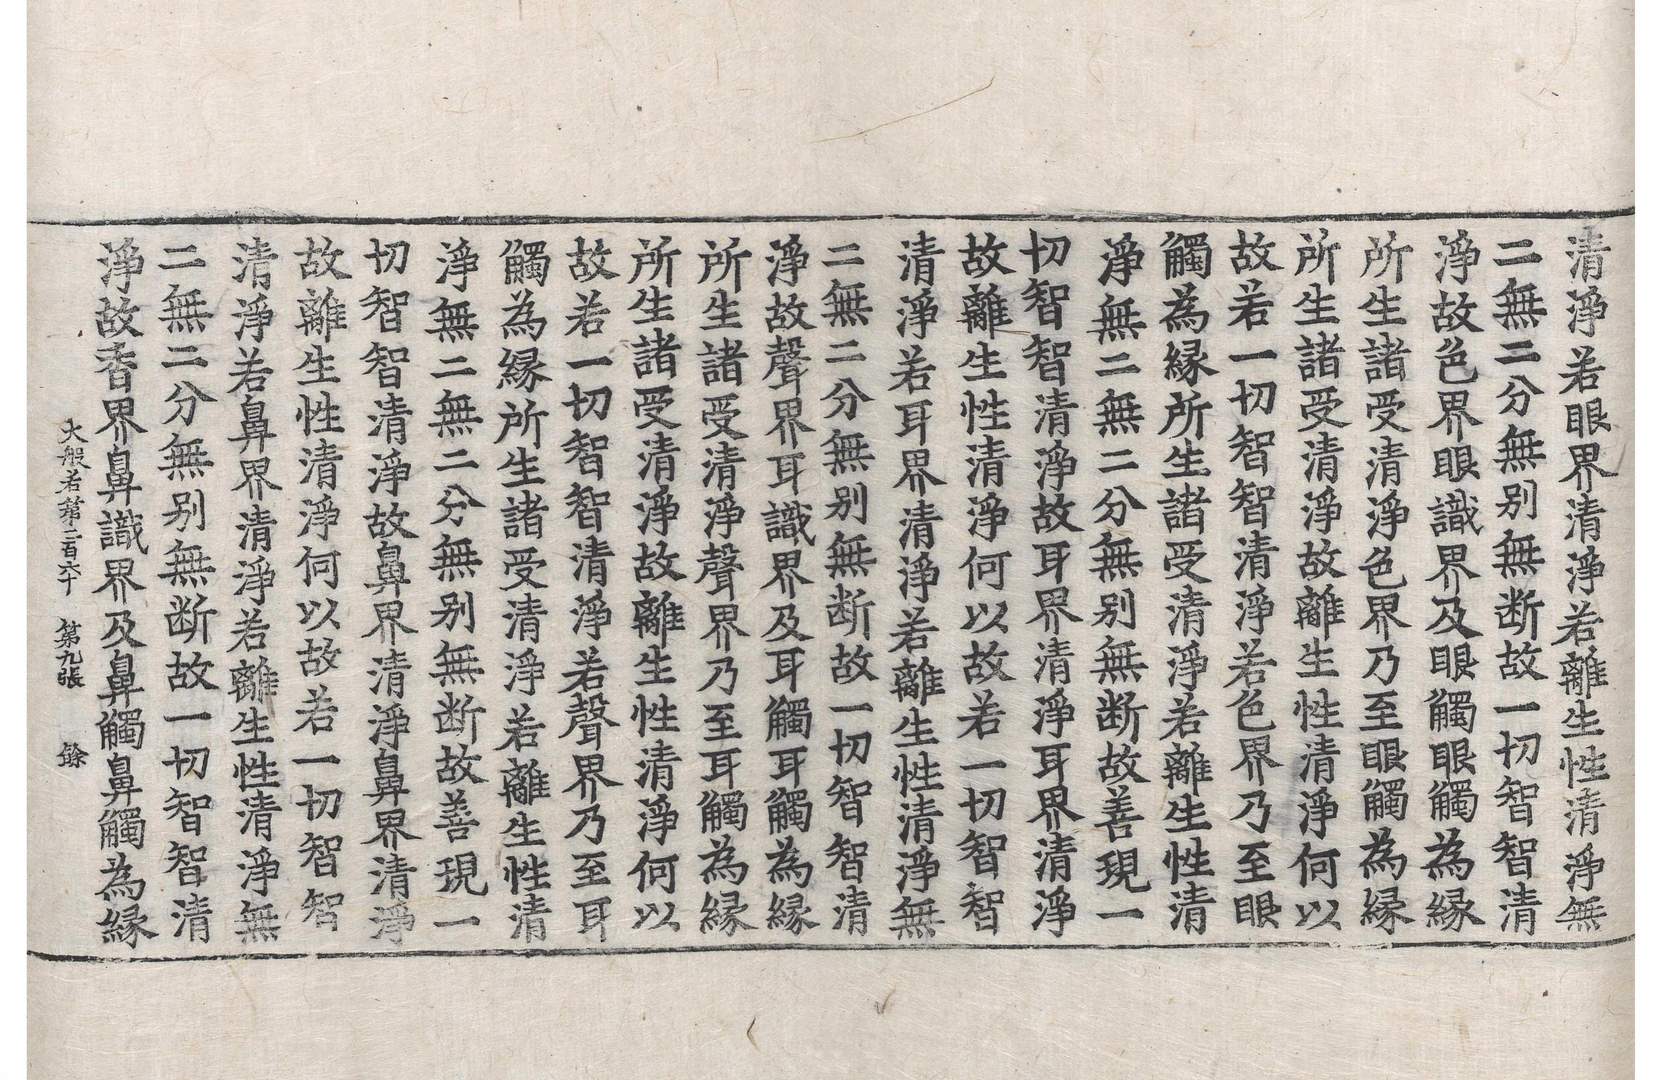 清淨若眼界清淨若離生性清淨無
二無二分無别無断故一切智智清
淨故色界眼識界及眼觸眼觸為縁
所生諸受清淨色界乃至眼觸為縁
所生諸受清淨故離生性清淨何以
故若一切智智清淨若色界乃至眼
觸為縁所生諸受清淨若離生性清
淨無二無二分無别無断故善現一
切智智清淨故耳界清淨耳界清淨
故離生性清淨何以故若一切智智
清淨若耳界清淨若離生性清淨無
二無二分無别無断故一切智智清
淨故聲界耳識界及耳觸耳觸為縁
所生諸受清淨聲界乃至耳觸為縁
所生諸受清淨故離生性清淨何以
故若一切智智清淨若聲界乃至耳
觸為縁所生諸受清淨若離生性清
淨無二無二分無别無断故善現一
切智智清淨故鼻界清淨鼻界清淨
故離生性清淨何以故若一切智智
清淨若鼻界清淨若離生性清淨無
二無二分無别無断故一切智智清
淨故香界鼻識界及鼻觸鼻觸為縁
大般若第二百六十 第九張 餘